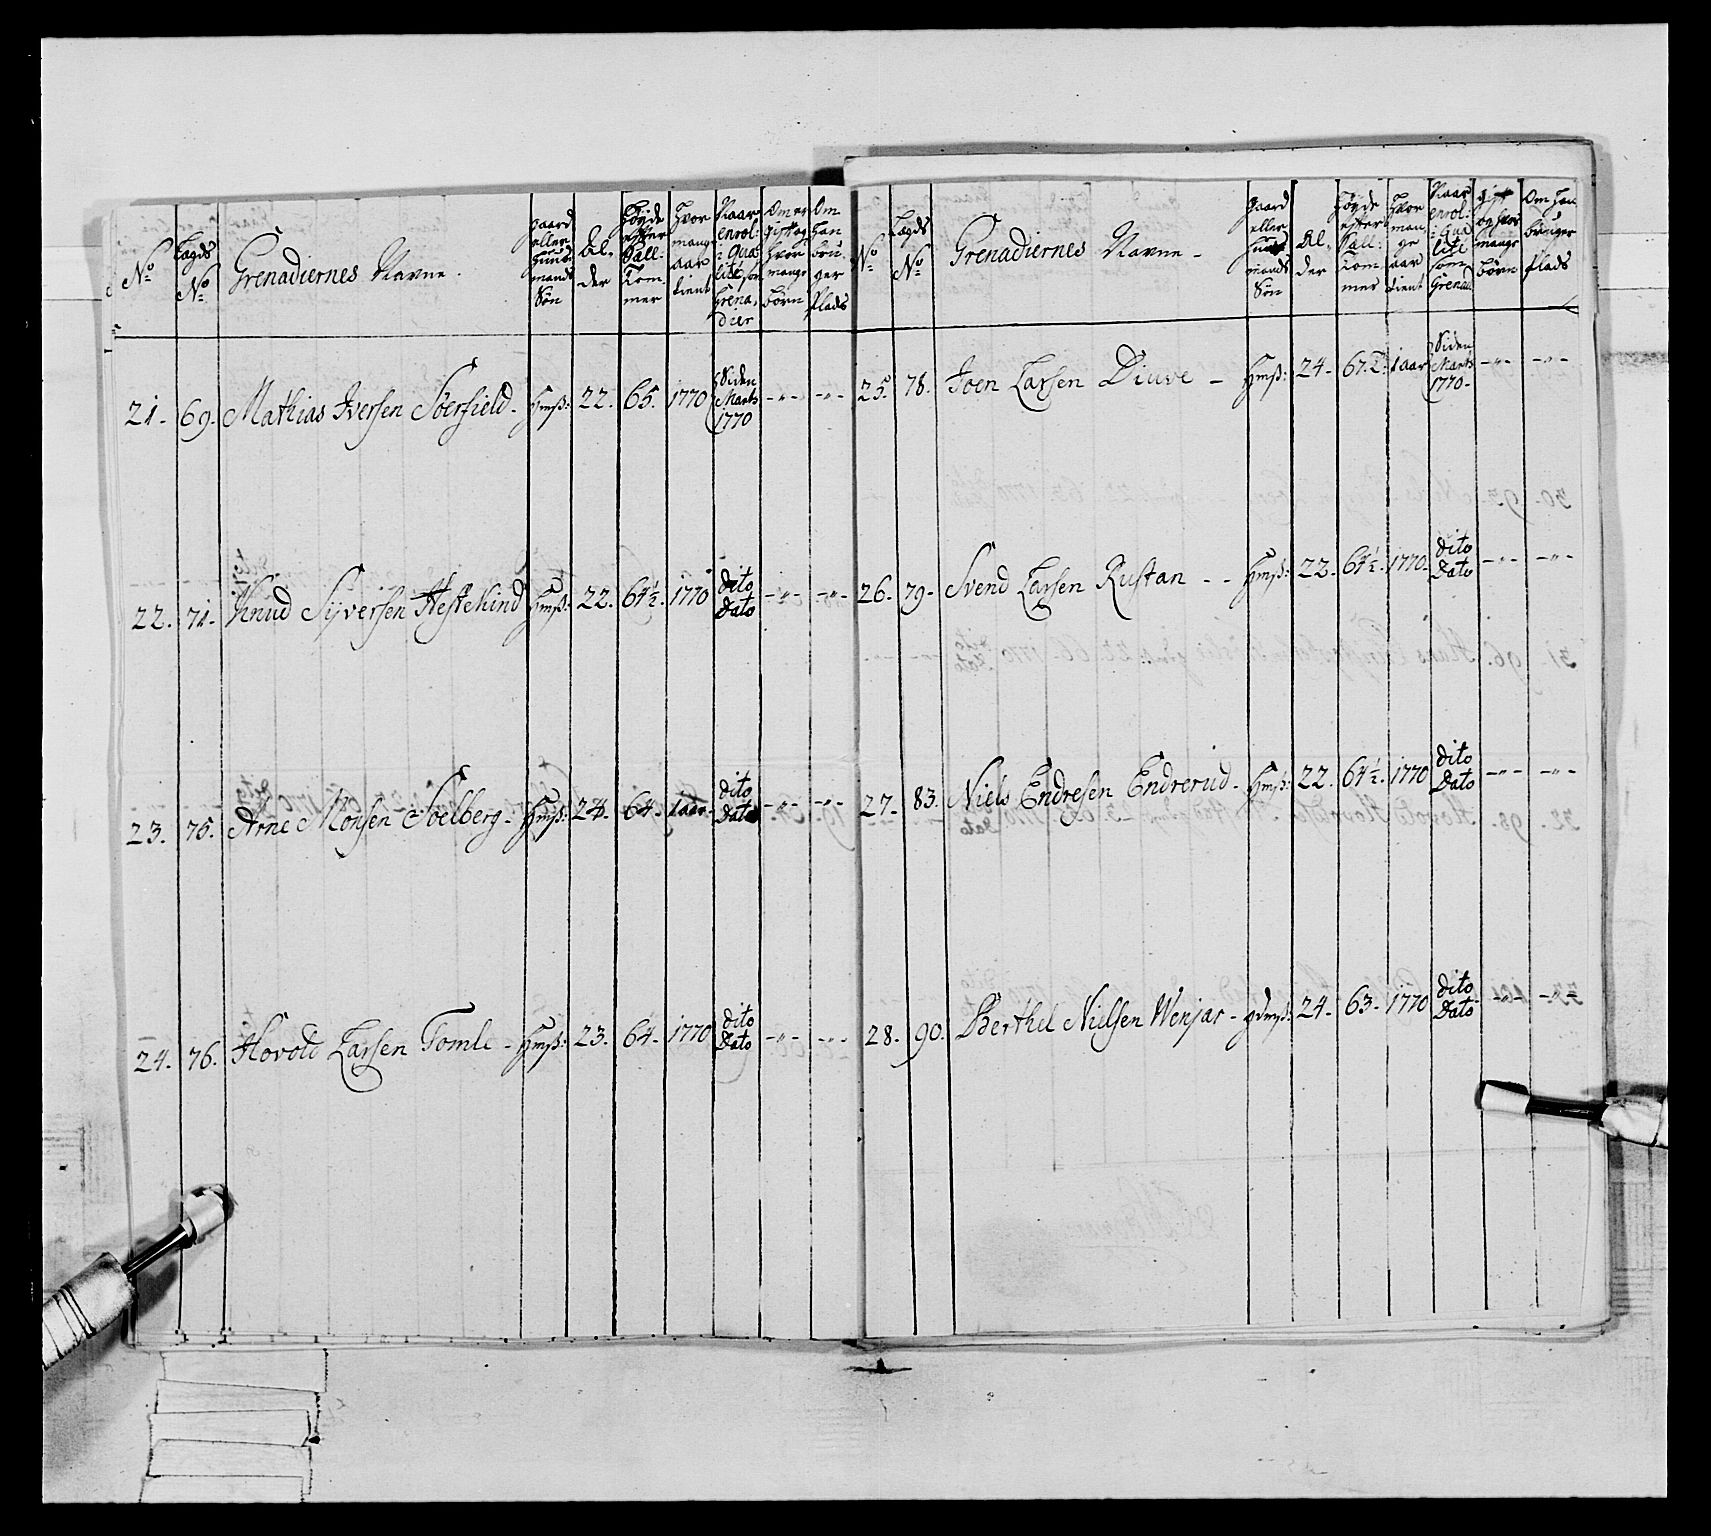 No
Lægds No
Grenadiernes Navne.
Gaard eller Huusmands Søn
Alder
Høyde efter Sall: Tommer
Hvor mange aar tient
Naar enrol: Qualite som Grenadier
Om er gift og hvor mange børn
Om han bruger Plads
21. 69. Mathias Iversen Söerfield. Hmß: 22. 65. 1770 Siden Marts 1770 -"- -"-
22. 71. Knud Syversen Hestekind Hmß: 22. 64½. 1770 dito Dato -"- -"-
23. 75. Arne Monsen Soelberg. Hmß: 24. 64. 1 aar dito Dato -"- -"-
24. 76. Hovold Larsen Tomle - Hmß: 23. 64. 1770 dito Dato -"- -"-
No
Lægds No
Grenadiernes Navne.
Gaard eller Huusmands Søn
Alder
Høyde efter Sall: Tommer
Hvor mange aar tient
Naar enrol: Qualite som Grenad:
gift og hvor mange børn
Om han bruger Plads
25. 78. Joen Larsen Diuve - Hmß: 24. 67.½. 1 aar Siden Marts 1770. -"- -"-
26. 79. Svend Larsen Rustan - - Hmß: 22. 64½. 1770. dito Dato -"- -"-
27. 83. Niels Endresen Endrerud. Hmß: 22. 64½. 1770 dito Dato -"- -"-
28. 90. Berthel Nielsen Wenjar - gdmß: 24. 63. 1770 dito Dato -"- -"-